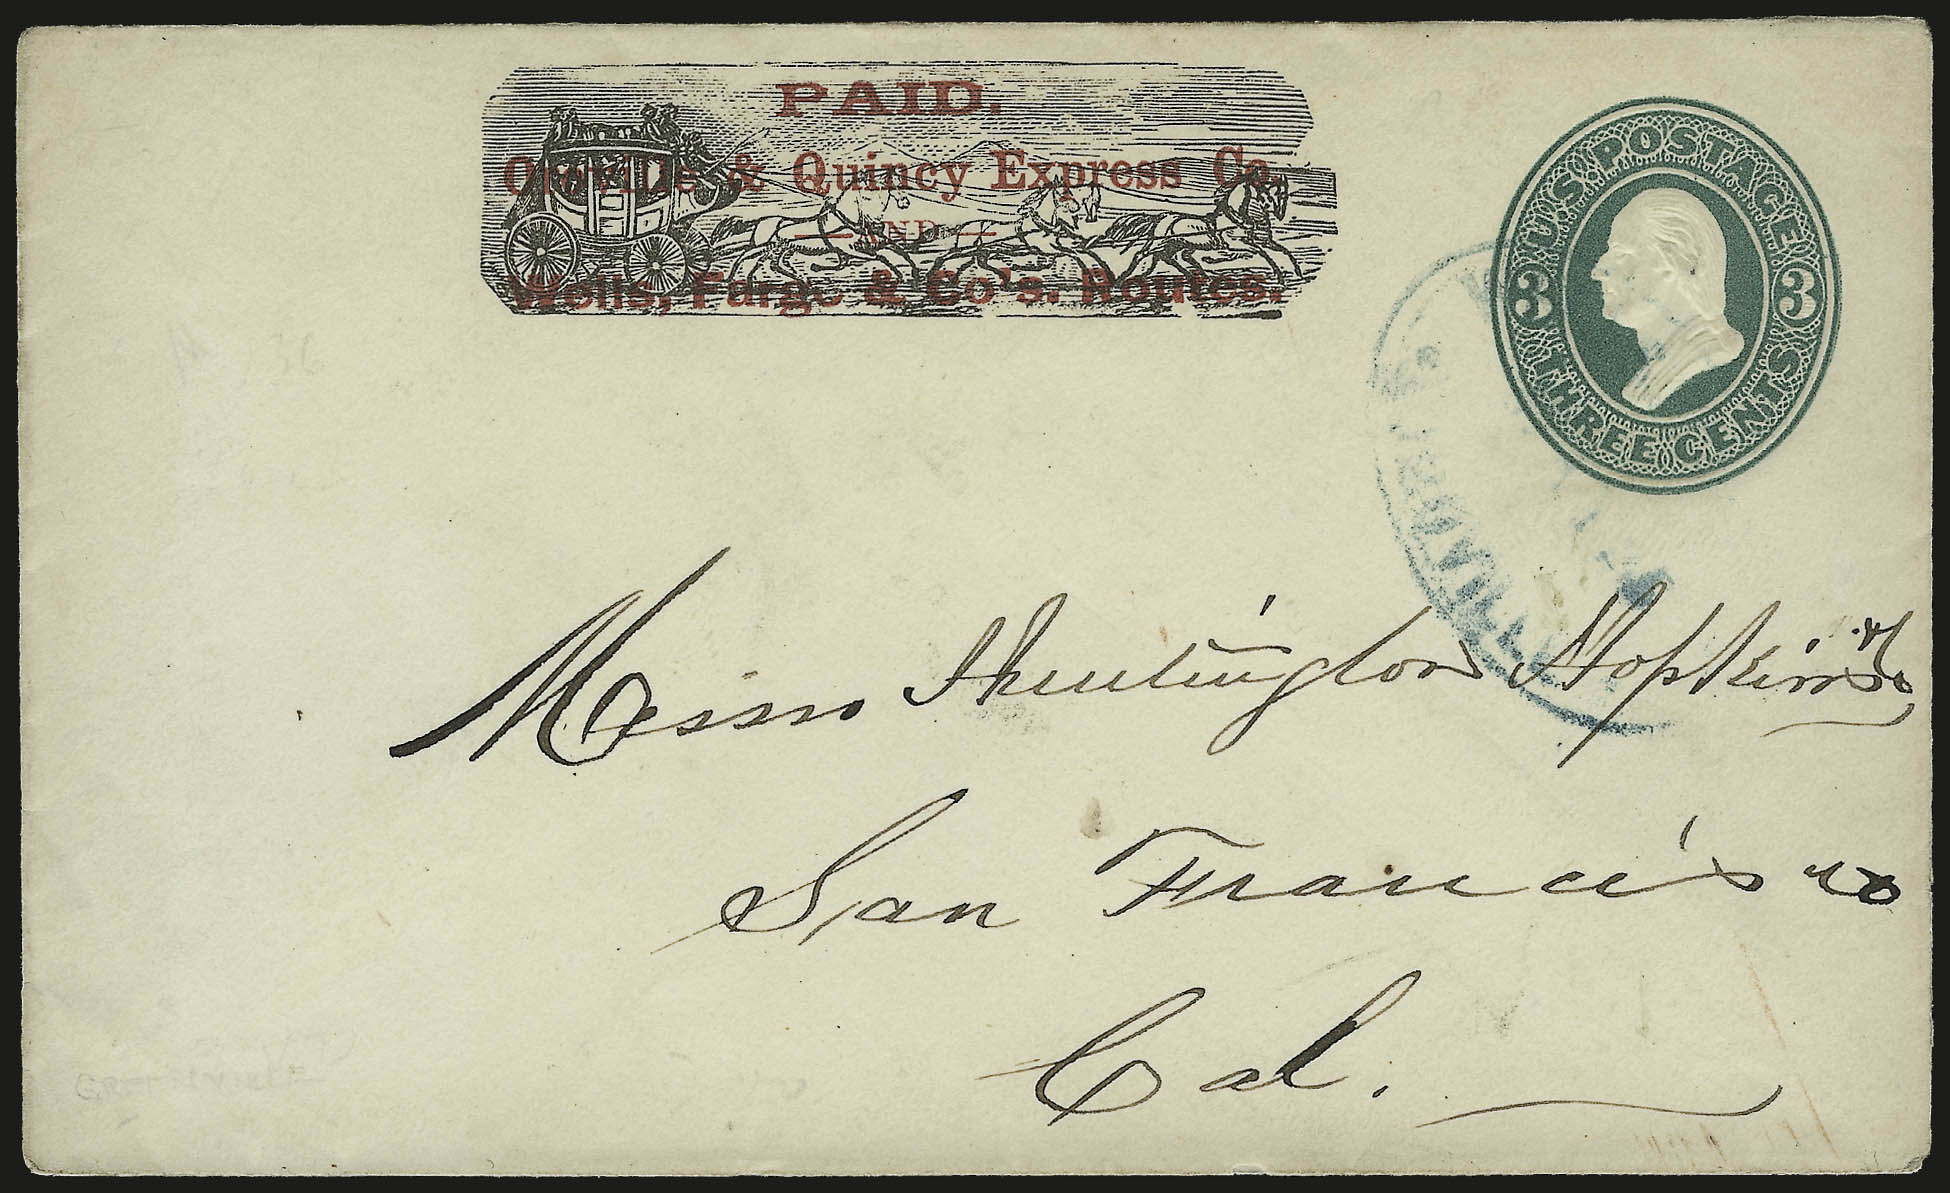 PAID.
Oroville & Quincy Express Co.
AND
Wells, Fargo & Co's. Routes.
U.S. POSTAGE
3 3
THREE CENTS
Messrs Huntington Hopkins & Co
San Francisco
Cal.
GREENVILLE